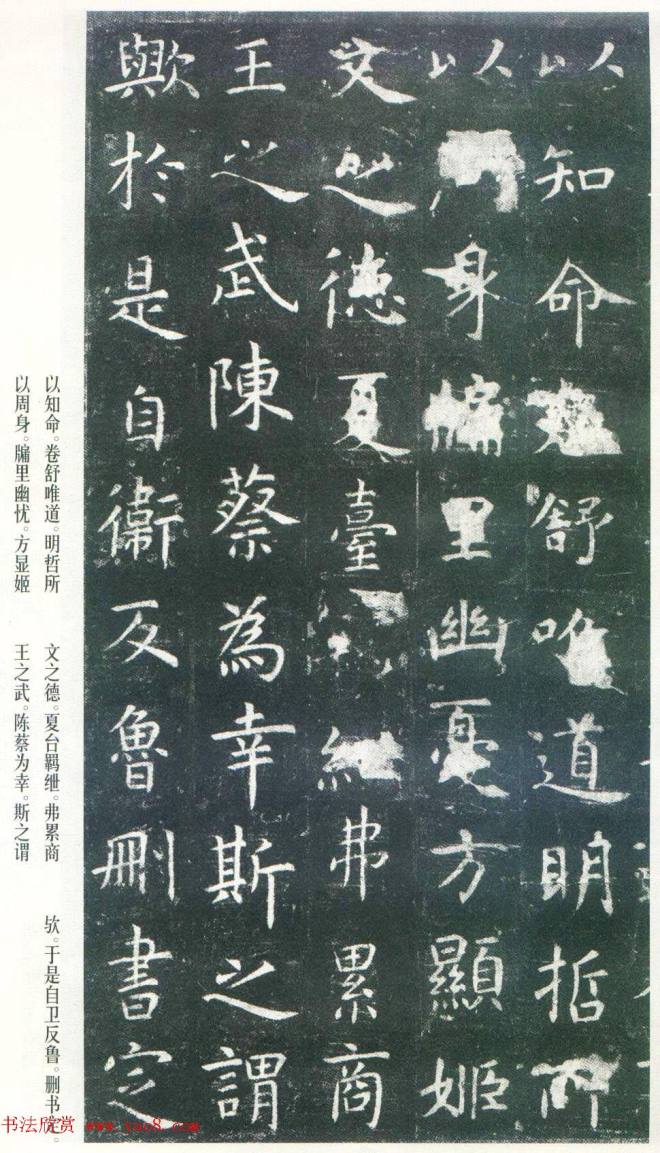 以知命舒唯道明哲所
以身牖里幽憂方顯姬
文之德夏臺紲弗累商
王之武陳蔡為幸斯之謂
歟於是自衛反魯刪書定
以知命。卷舒唯道。明哲所
以周身。牖里幽忧。方显姬
文之德。夏台羁绁。弗累商
王之武。陈蔡为幸。斯之谓
欤。于是自卫反鲁。删书定。
书法欣赏 www.yac8.com